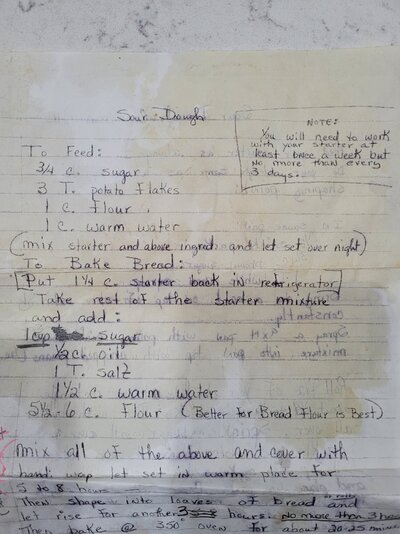 Sour Dough
NOTE:
You will need to work
with your starter at
least twice a week but
No more than every
3 days.
To Feed:
3/4 c. sugar
3 T. potato flakes
1 c. flour
1 c. warm water
(mix starter and above ingred. and let set over night)
To Bake Bread:
Put 1 1/4 c. starter back in refrigerator
Take rest of the starter mixture
and add:
1 cup sugar
1/2 c. oil
1 T. salt
1 1/2 c. warm water
5 1/2 - 6 c. Flour (Better for Bread Flour is Best)
mix all of the above and cover with
wap let set in warm place for
5 to 8 hours
Then shape into loaves of bread and
let rise for another 3 hours. No more than 3 hours
Then bake @ 350° oven for about 20-25 minutes